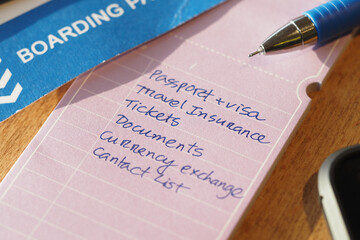 BOARDING PA
Passport + visa
Travel Insurance
Tickets
Documents
Currency exchange
Cantact List